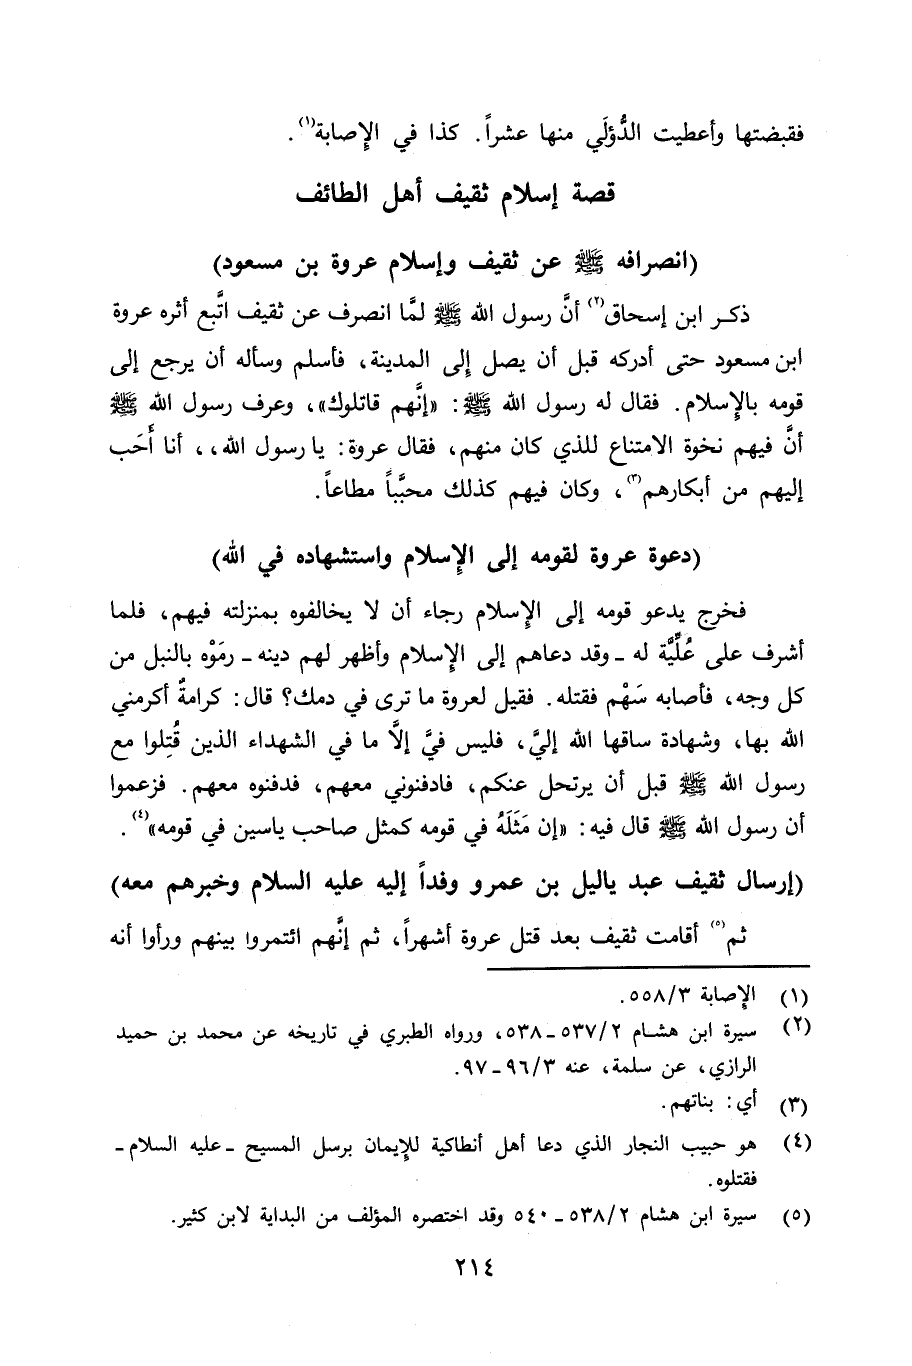 فقبضتها وأعطيت الدُّؤلَي منها عشراً. كذا في الإصابة(١).
قصة إسلام ثقيف أهل الطائف
(انصرافه ﷺ عن ثقيف وإسلام عروة بن مسعود)
ذكر ابن إسحاق(٢) أنَّ رسول الله ﷺ لمَّا انصرف عن ثقيف اتَّبع أثره عروة
ابن مسعود حتى أدركه قبل أن يصل إلى المدينة، فأسلم وسأله أن يرجع إلى
قومه بالإسلام. فقال له رسول الله ﷺ: «إنَّهم قاتلوك»، وعرف رسول الله ﷺ
أنَّ فيهم نخوة الامتناع للذي كان منهم، فقال عروة: يا رسول الله،، أنا أَحَب
إليهم من أبكارهم(٣)، وكان فيهم كذلك محبَّباً مطاعاً.
(دعوة عروة لقومه إلى الإسلام واستشهاده في الله)
فخرج يدعو قومه إلى الإسلام رجاء أن لا يخالفوه بمنزلته فيهم، فلما
أشرف على عُلِّيَّة له ـ وقد دعاهم إلى الإسلام وأظهر لهم دينه ـ رمَوْه بالنبل من
كل وجه، فأصابه سَهْم فقتله. فقيل لعروة ما ترى في دمك؟ قال: كرامةٌ أكرمني
الله بها، وشهادة ساقها الله إليَّ، فليس فيَّ إلَّا ما في الشهداء الذين قُتِلوا مع
رسول الله ﷺ قبل أن يرتحل عنكم، فادفنوني معهم، فدفنوه معهم. فزعموا
أن رسول الله ﷺ قال فيه: «إن مَثَلَهُ في قومه كمثل صاحب ياسين في قومه»(٤).
(إرسال ثقيف عبد ياليل بن عمرو وفداً إليه عليه السلام وخبرهم معه)
ثم(٥) أقامت ثقيف بعد قتل عروة أشهراً، ثم إنَّهم ائتمروا بينهم ورأوا أنه
(١) الإصابة ٥٥٨/٣.
(٢) سيرة ابن هشام ٥٣٧/٢ـ٥٣٨، ورواه الطبري في تاريخه عن محمد بن حميد
الرازي، عن سلمة، عنه ٩٦/٣ـ٩٧.
(٣) أي: بناتهم.
(٤) هو حبيب النجار الذي دعا أهل أنطاكية للإيمان برسل المسيح ـ عليه السلام ـ
فقتلوه.
(٥) سيرة ابن هشام ٥٣٨/٢ـ ٥٤٠ وقد اختصره المؤلف من البداية لابن كثير.
٢١٤